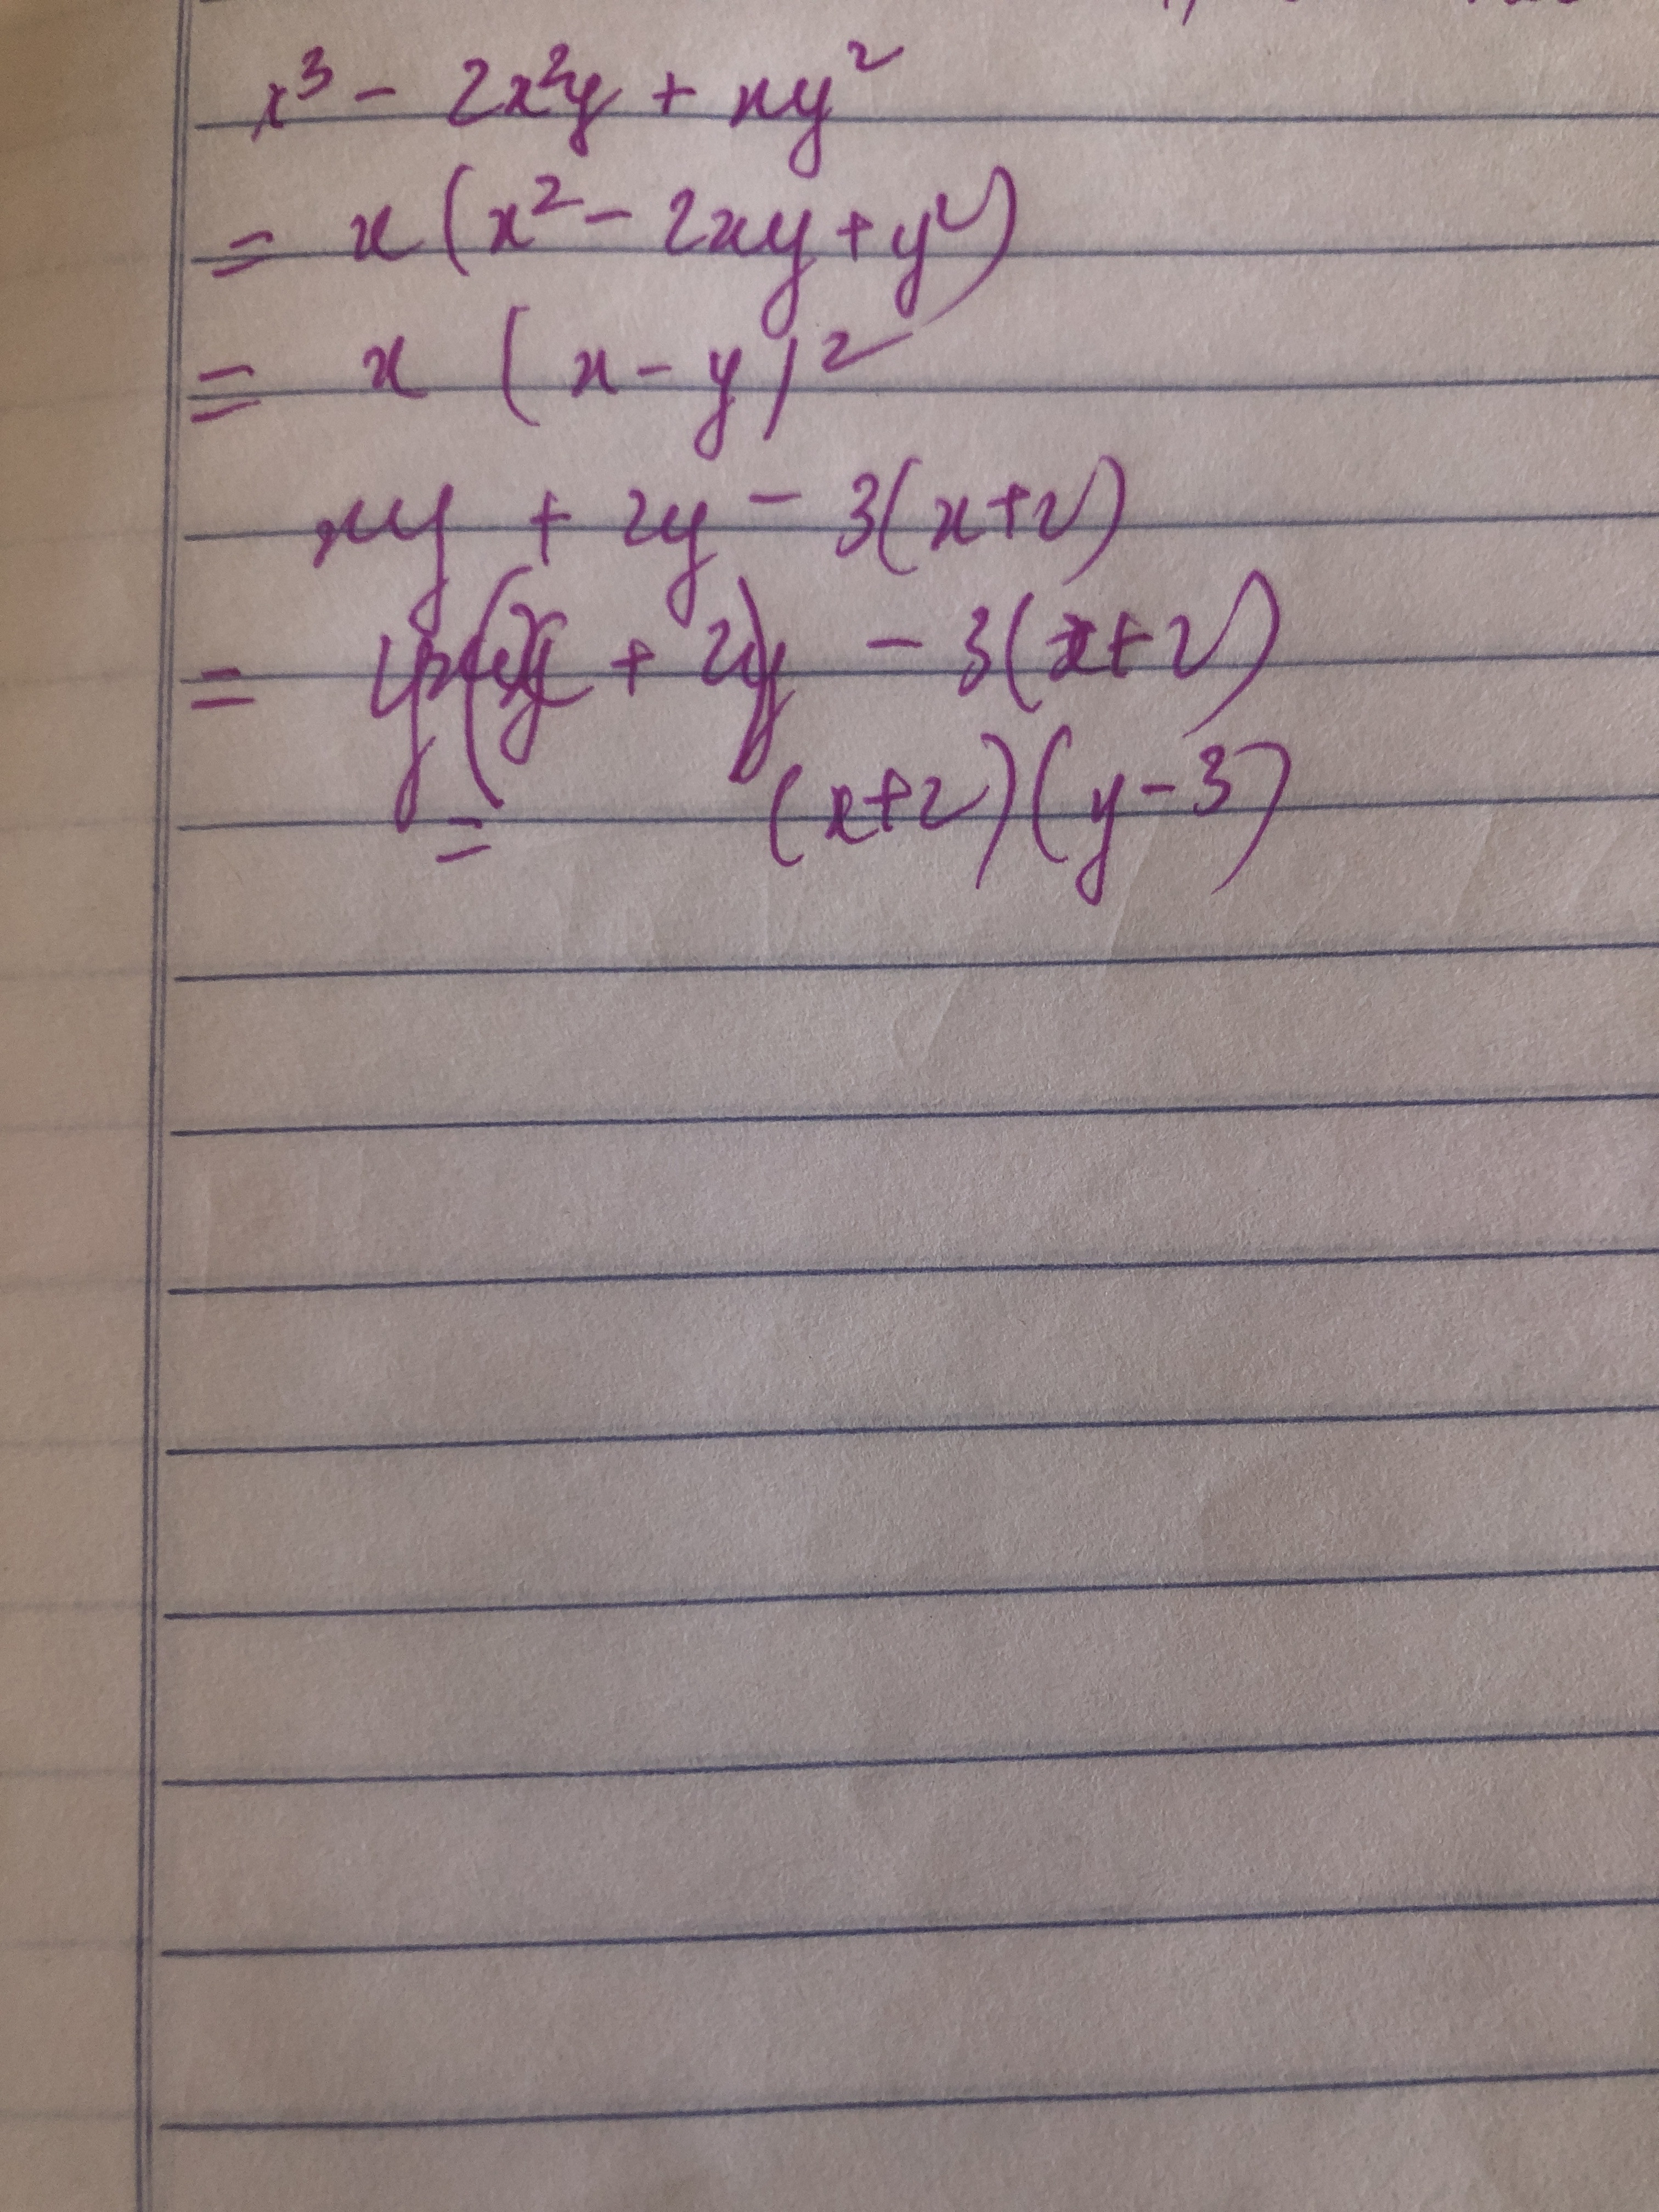 x³ - 2x²y + xy²
= x (x² - 2xy + y²)
= x (x - y)²
xy + 2y - 3(x+2)
= y(x + 2) - 3(x+2)
= (x+2)(y-3)